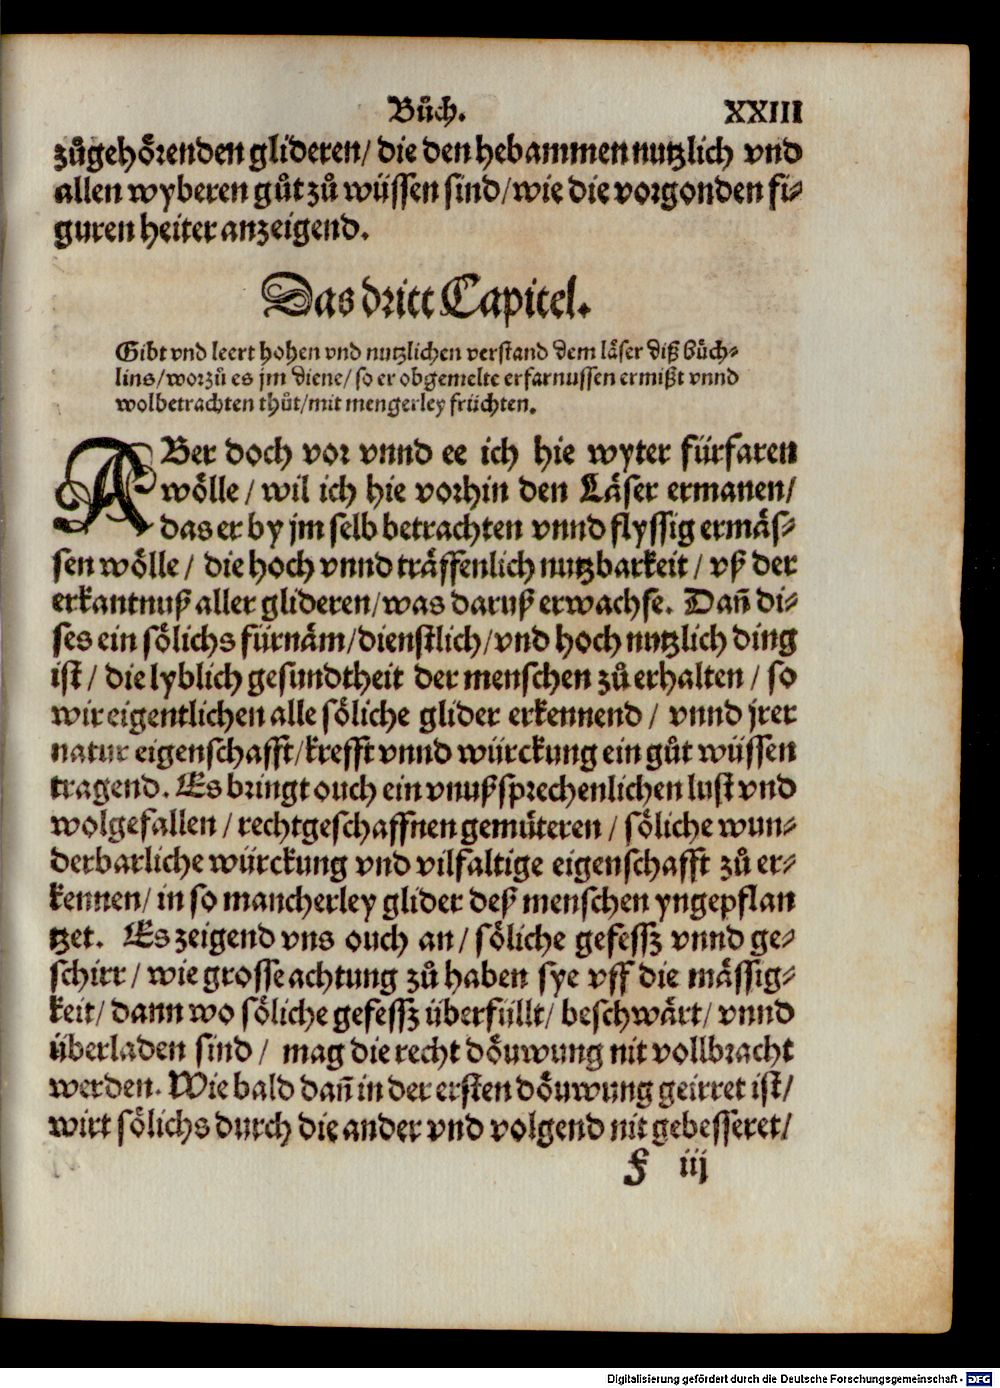 Bůch. XXIII
zůgehörenden glideren/ die den hebammen nutzlich vnd
allen wyberen gůt zů wüssen sind/ wie die vorgonden fi-
guren heiter anzeigend.
Das dritt Capitel.
Gibt vnd leert hohen vnd nutzlichen verstand dem läser diß bůch-
lins/ worzů es jm diene/ so er obgemelte erfarnussen ermißt vnnd
wolbetrachten thůt/ mit mengerley früchten.
ABer doch vor vnnd ee ich hie wyter fürfaren
wölle/ wil ich hie vorhin den Läser ermanen/
das er by jm selb betrachten vnnd flyssig ermäs-
sen wölle/ die hoch vnnd träffenlich nutzbarkeit/ vß der
erkantnuß aller glideren/ was daruß erwachse. Dañ di-
ses ein sölichs fürnäm/ dienstlich/ vnd hoch nutzlich ding
ist/ die lyblich gesundtheit der menschen zů erhalten/ so
wir eigentlichen alle söliche glider erkennend/ vnnd jrer
natur eigenschafft/ krefft vnnd würckung ein gůt wüssen
tragend. Es bringt ouch ein vnußsprechenlichen lust vnd
wolgefallen/ rechtgeschaffnen gemüteren/ söliche wun-
derbarliche würckung vnd vilfaltige eigenschafft zů er-
kennen/ in so mancherley glider deß menschen yngepflan
tzet. Es zeigend vns ouch an/ söliche gefessz vnnd ge-
schirr/ wie grosse achtung zů haben sye vff die mässig-
keit/ dann wo söliche gefessz überfüllt/ beschwärt/ vnnd
überladen sind/ mag die recht döuwung nit vollbracht
werden. Wie bald dañ in der ersten döuwung geirret ist/
wirt sölichs durch die ander vnd volgend nit gebesseret/
F iij
Digitalisierung gefördert durch die Deutsche Forschungsgemeinschaft - DFG